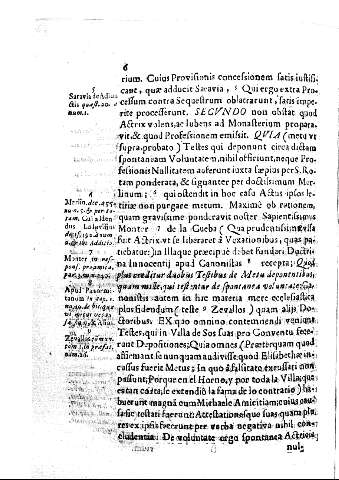 6
rium. Cuius Provisionis concessionem satis iustifi-
cant, quæ adducit Saravia, 5 Qui ergo extra Pro-
cessum contra Sequestrum oblatrarunt, satis impe-
rite processerunt. SECUNDO non obstat quod
Actrix volens, ac lubens ad Monasterium propera-
vit, & quod Professionem emissit. QVIA (metu vt
supra probato) Testes qui deponunt circa dictam
spontaneam Voluntatem, nihil officiunt, neque Pro-
fessionis Nullitatem auferunt iuxta sæpius per S. Ro-
tam ponderata, & signanter per doctissimum Mer-
linum; 6 qui ostendit in hoc casu Actus ipsos le-
titiæ non purgare metum. Maximè ob rationem,
quam gravissime ponderavit noster Sapientissimus
Monter 7 de la Cueba (Qua prudentissimi
suit Actrix vt se liberaret à Vexationibus, quas pa-
tiebatur) in Illaque præcipuè debet fundari Doctri-
na Innocentij apud Canonistas 8 recepta; Quod
plus creditur duobus Testibus de Metu deponentibus,
quam mille, qui testentur de spontanea voluntate:
nonistis autem in hic materia mere ecclesiastica
plus fidendum (teste 9 Zevallos) quam alijs Do-
ctoribus. EX quo omnino contemnendi veniunt
Testes, qui in Valla de Sos fuerunt pro Conventu fece-
runt Depositiones; Quia omnes (Præterquam quod
affirmant se nunquam audivisse, quod Elisabethæ in-
cussus fuerit Metus; In quo à falsitate excussari non
possunt; Porque en el Horno, y por toda la Villa, que
estan corta, se extendiò la fama de lo contrario) ha-
buerunt magnam cum Michaele Amicitiam; cuius
satis testati fuerunt: Attestationesque suas quam plu-
res ex ipsis fecerunt per verba negativa nihil con-
cludentia. De voluntate ergo spontanea Actricis
nul-
5
Saravia de Adiun
ctis quæst. 20.
num. 1.
6
Merlin. dec. 455
7
Monter in
8
Apud Panorm.
tanum in cap. 1.
9
Zevallos commun.